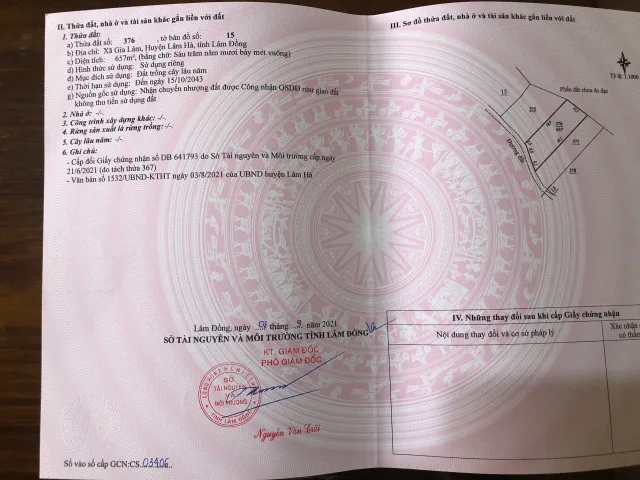 II. Thửa đất, nhà ở và tài sản khác gắn liền với đất
1. Thửa đất:
a) Thửa đất số: 376, tờ bản đồ số: 15
b) Địa chỉ: Xã Gia Lâm, Huyện Lâm Hà, tỉnh Lâm Đồng
c) Diện tích: 657m², (bằng chữ: Sáu trăm năm mươi bảy mét vuông)
d) Hình thức sử dụng: Sử dụng riêng
đ) Mục đích sử dụng: Đất trồng cây lâu năm
e) Thời hạn sử dụng: Đến ngày 15/10/2043
g) Nguồn gốc sử dụng: Nhận chuyển nhượng đất được Công nhận QSDĐ như giao đất
không thu tiền sử dụng đất
2. Nhà ở: -/-.
3. Công trình xây dựng khác: -/-.
4. Rừng sản xuất là rừng trồng: -/-.
5. Cây lâu năm: -/-.
6. Ghi chú:
- Cấp đổi Giấy chứng nhận số DB 641793 do Sở Tài nguyên và Môi trường cấp ngày
21/6/2021 (do tách thửa 367)
- Văn bản số 1532/UBND-KTHT ngày 03/8/2021 của UBND huyện Lâm Hà
Lâm Đồng, ngày tháng 9 năm 2021
SỞ TÀI NGUYÊN VÀ MÔI TRƯỜNG TỈNH LÂM ĐỒNG
KT. GIÁM ĐỐC
PHÓ GIÁM ĐỐC
SỞ
TÀI NGUYÊN
VÀ
MÔI TRƯỜNG
TỈNH LÂM ĐỒNG
Nguyễn Văn Trãi
Số vào sổ cấp GCN:CS 03406
III. Sơ đồ thửa đất, nhà ở và tài sản khác gắn liền với đất
Phần đất chưa đo đạc
15
376
657
377
378
Đường đất
IV. Những thay đổi sau khi cấp Giấy chứng nhận
Nội dung thay đổi và cơ sở pháp lý
Xác nhận
có thẩm